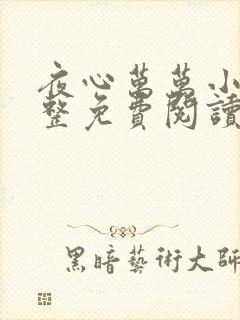 夜心萬萬小
整免費閱讀
黑暗藝術大師